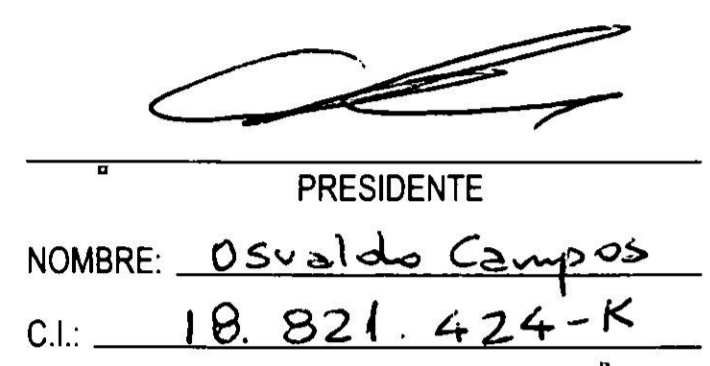 PRESIDENTE
NOMBRE: Osvaldo Campos
C.I.: 18.821.424-K